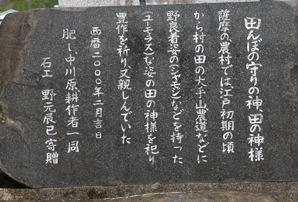 田んぼの守りの神、田の神様
薩摩の農村では江戸初期の頃
から村の田の火ヶ山農道などに
野良着姿のシャモジなどを持った
(ユーモラス)な姿の田の神様を祀り
豊作を祈り、又親しんでいた
西暦二〇〇〇年二月吉日
肥し中川原耕作者一同
石工 野元辰巳寄贈